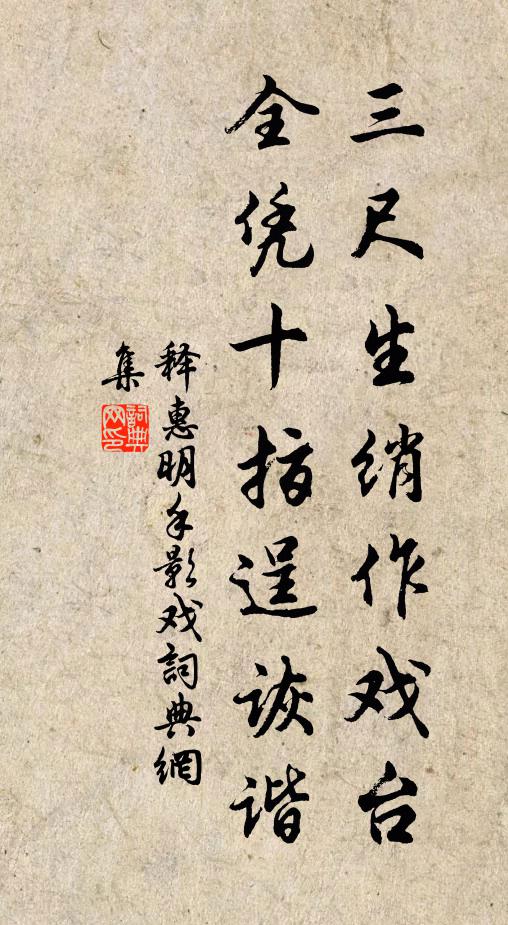 三尺生绡作戏台
全凭十指逞诙谐
释惠明手影戏詞典網
集
詞典网印